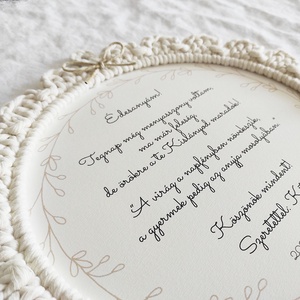 Édesanyám!
Tegnap még menyasszony voltam,
ma már feleség,
de örökre a te Kislányod maradok!
"A virág a napfényben növekszik,
a gyermek pedig az anyja mosolyában."
Köszönök mindent!
Szeretettel: K
20